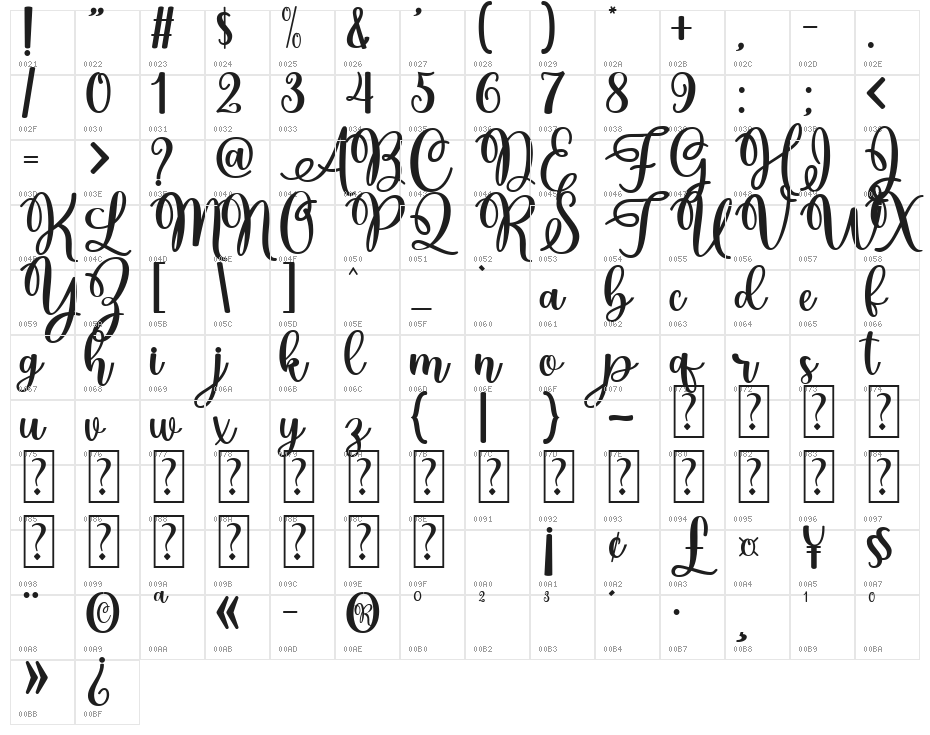 ! " # $ % & ' ( ) * + , - .
0021 0022 0023 0024 0025 0026 0027 0028 0029 002A 002B 002C 002D 002E
/ 0 1 2 3 4 5 6 7 8 9 : ; <
002F 0030 0031 0032 0033 0034 0035 0036 0037 0038 0039 003A 003B 003C
= > ? @ A B C D E F G H I J
003D 003E 003F 0040 0041 0042 0043 0044 0045 0046 0047 0048 0049 004A
K L M N O P Q R S T U V W X
004B 004C 004D 004E 004F 0050 0051 0052 0053 0054 0055 0056 0057 0058
Y Z [ \ ] ^ _ ` a b c d e f
0059 005A 005B 005C 005D 005E 005F 0060 0061 0062 0063 0064 0065 0066
g h i j k l m n o p q r s t
0067 0068 0069 006A 006B 006C 006D 006E 006F 0070 0071 0072 0073 0074
u v w x y z { | } ~ ? ? ? ?
0075 0076 0077 0078 0079 007A 007B 007C 007D 007E 0080 0082 0083 0084
? ? ? ? ? ? ? ? ? ? ? ? ? ?
0085 0086 0088 008A 008B 008C 008E 0091 0092 0093 0094 0095 0096 0097
? ? ? ? ? ? ? ¡ ¢ £ ¤ ¥ §
0098 0099 009A 009B 009C 009E 009F 00A0 00A1 00A2 00A3 00A4 00A5 00A7
¨ © ª « - ® ⁰ ² ³ ´ · ¸ ¹ º
00A8 00A9 00AA 00AB 00AD 00AE 00B0 00B2 00B3 00B4 00B7 00B8 00B9 00BA
» ¿
00BB 00BF